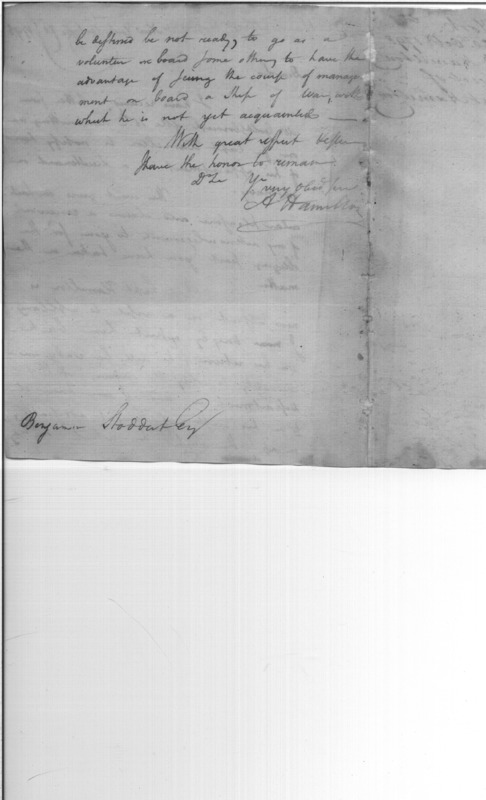 be destined be not ready, to go as a
volunteer on board some other, to have the
advantage of seeing the course of manage
ment on board a Ship of War, with
which he is not yet acquainted
With great respect & esteem
I have the honor to remain
D Sir Yr very obed ser
A Hamilton
Benjamin Stoddert Esqr